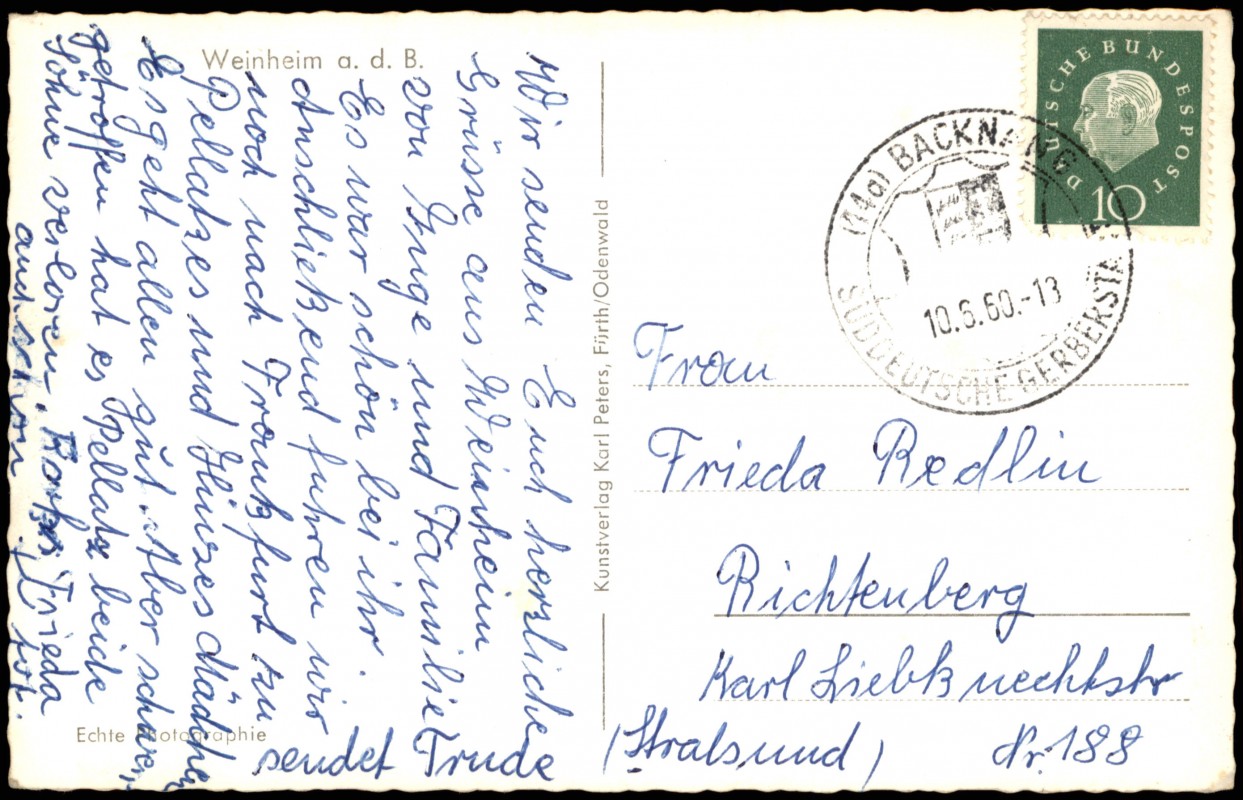 Weinheim a. d. B.
Wir senden Euch herzliche
Grüsse aus Weinheim
von Inge und Familie
Es war schön bei ihr.
Anschließend fuhren wir
noch nach Frankfurt zu
Pellatzes und
Es geht allen gut. Aber schwer
getroffen hat es Pellatz beide
Söhne verloren. Frieda
auch schon tot.
sendet Trude
Echte Photographie
Kunstverlag Karl Peters, Fürth/Odenwald
DEUTSCHE BUNDESPOST
10
(14a) BACKNANG
10.6.60.-13
SÜDDEUTSCHE GERBERSTADT
Frau
Frieda Redlin
Richtenberg
Karl Liebknechtstr
(Stralsund) Nr. 188